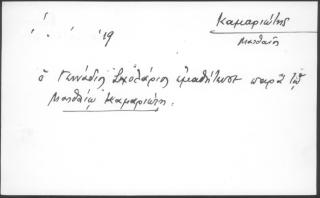 Καμαριώτης
Ματθαῖος
ί. . '19
ὁ Γεννάδιος Σχολάριος ἐμαθήτευσε παρὰ τῷ
Ματθαίῳ Καμαριώτῃ.